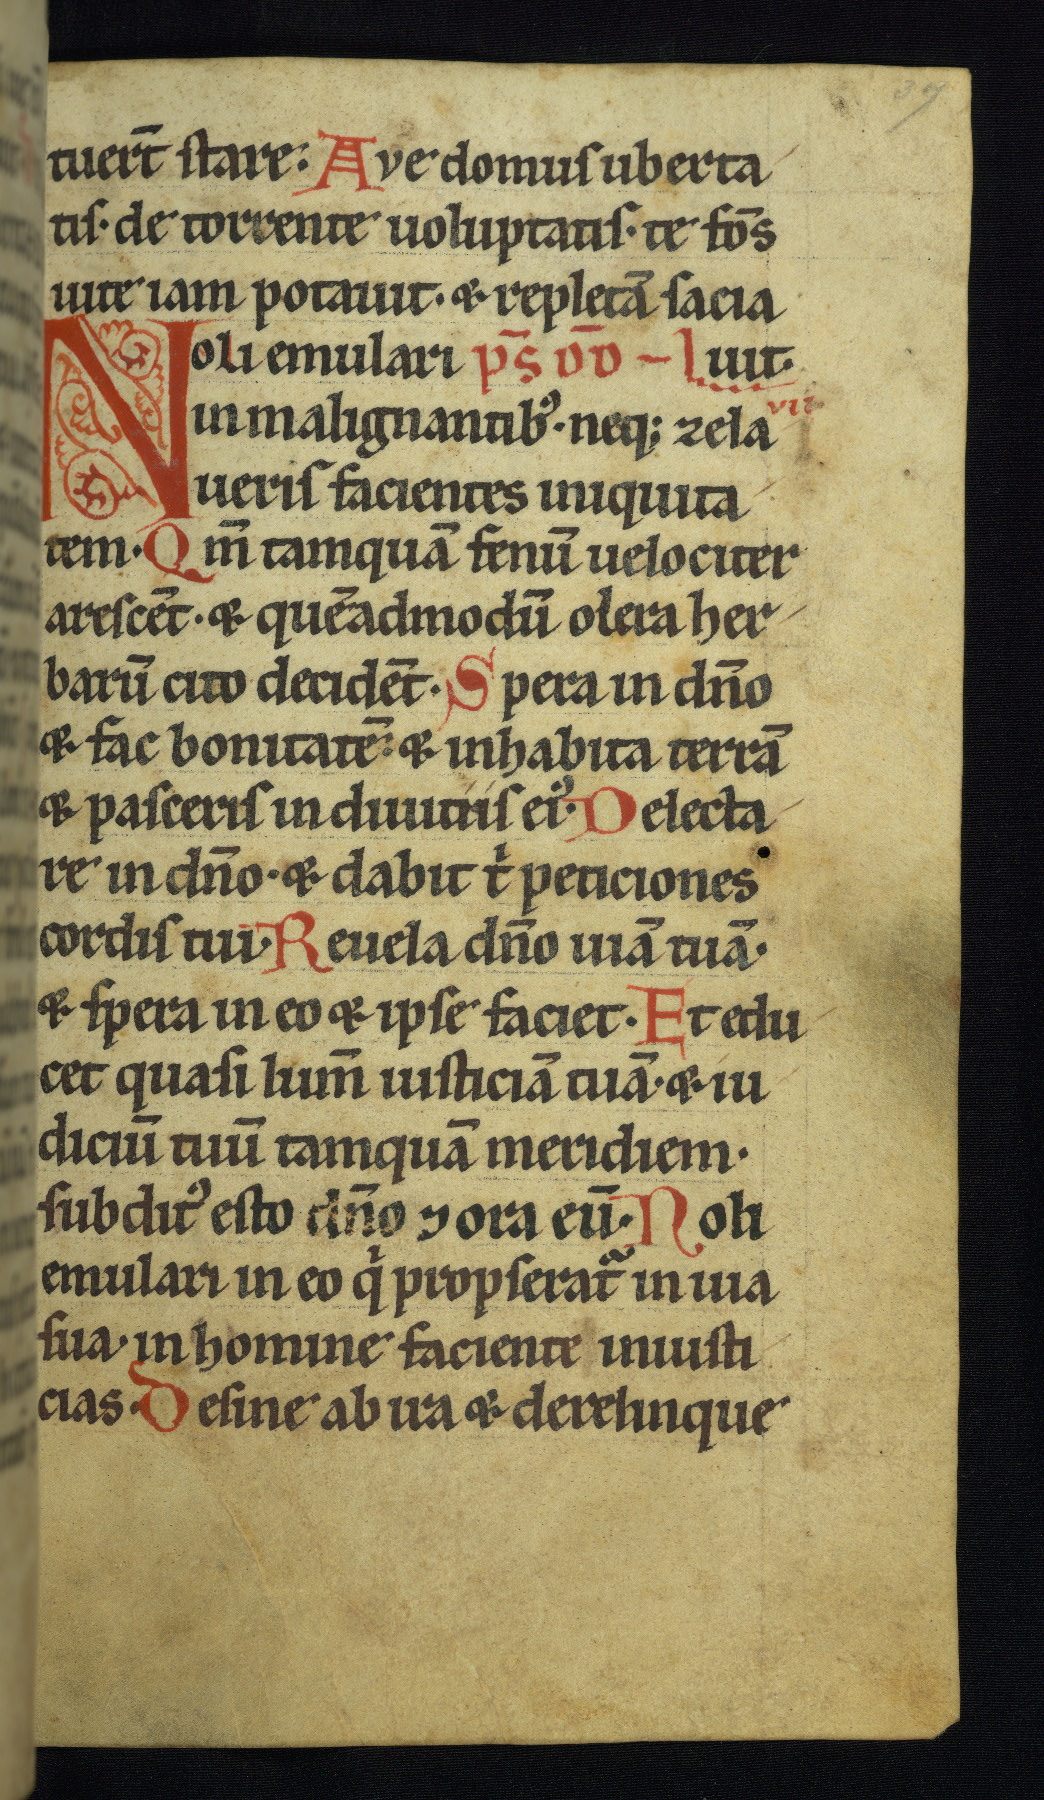 37
tuert̄ stare: Ave domus uberta
tis· de torrente uoluptatis· te fōs
uite iam potauit· ⁊ repletā sacia
Noli emulari p̄s d̄d – l uit·
in malignantibꝰ· neq; zela vit
ueris facientes iniquita
tem· Qm̄ tamquā fenū uelociter
arescēt· ⁊ quēadmodū olera her
barū cito decidēt· Spera in dn̄o
⁊ fac bonitatē: ⁊ inhabita terrā
⁊ pasceris in diuitiis eiꝰ· Delecta
re in dn̄o· ⁊ dabit t̍ peticiones
cordis tui· Reuela dn̄o uiā tuā·
⁊ spera in eo ⁊ ipse faciet· Et edu
cet quasi lum̄ iusticiā tuā· ⁊ iu
diciū tuū tamquā meridiem·
subditꝰ esto dn̄o ⁊ ora eū· Noli
emulari in eo q̍ propserat᷑ in uia
sua· in homine faciente iniusti
cias· Desine ab ira ⁊ derelinque